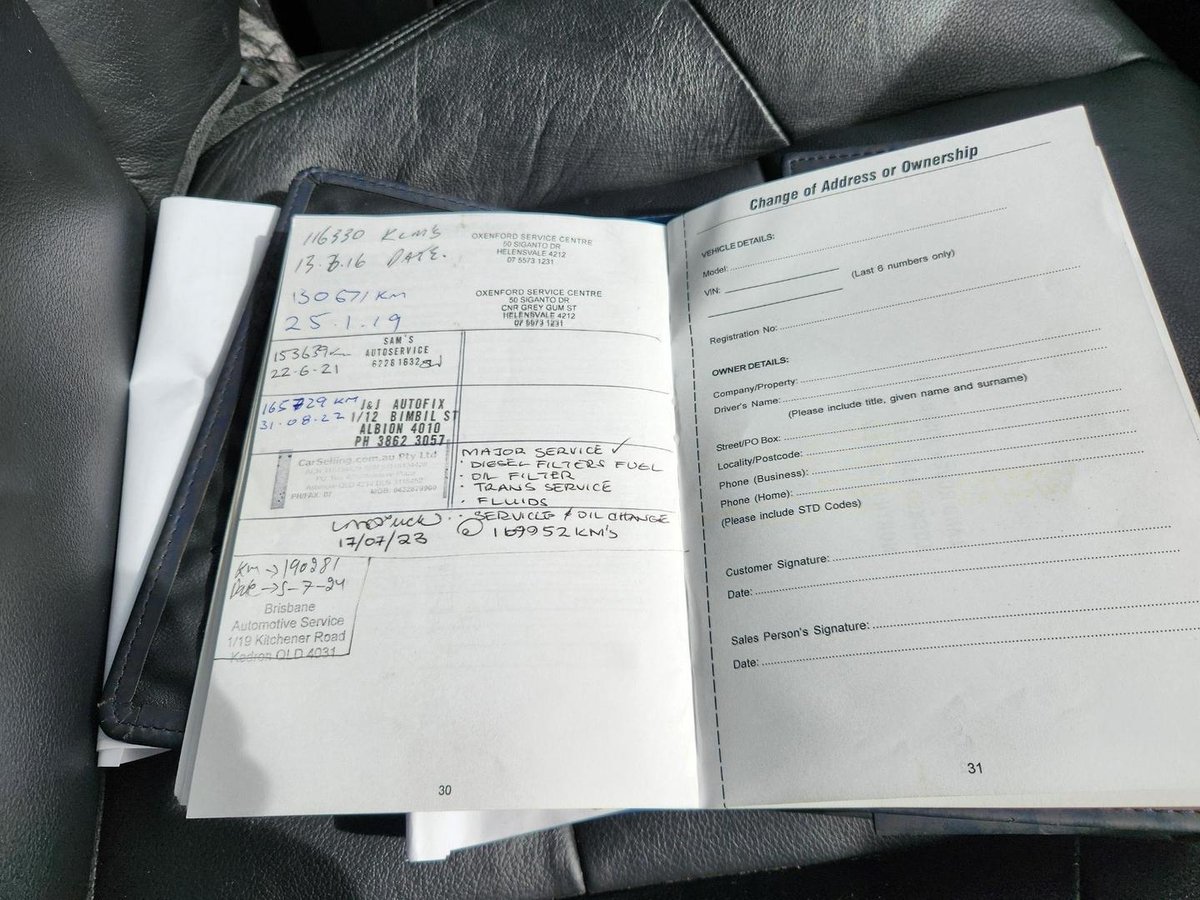 116330 KLM'S
13.7.16 DATE.
OXENFORD SERVICE CENTRE
50 SIGANTO DR
HELENSVALE 4212
07 5573 1231
130671 KM
25.1.19
OXENFORD SERVICE CENTRE
50 SIGANTO DR
CNR GREY GUM ST
HELENSVALE 4212
07 5573 1231
153639km
22-6-21
SAM'S
AUTOSERVICE
6228 1632
165729 KM
31-08-22
J&J AUTOFIX
1/12 BIMBIL ST
ALBION 4010
PH 3862 3057
CarSelling.com.au Pty Ltd
PH/FAX: 07
MOB: 0422879960
17/07/23
MAJOR SERVICE ✓
· DIESEL FILTERS FUEL
· OIL FILTER
· TRANS SERVICE
· FLUIDS
· SERVICE & OIL CHANGE
@ 169952 KM'S
Km → 190281
Date → 5-7-24
Brisbane
Automotive Service
1/19 Kitchener Road
Kedron QLD 4031
30
Change of Address or Ownership
VEHICLE DETAILS:
Model:
VIN: (Last 6 numbers only)
Registration No:
OWNER DETAILS:
Company/Property:
Driver's Name:
(Please include title, given name and surname)
Street/PO Box:
Locality/Postcode:
Phone (Business):
Phone (Home):
(Please include STD Codes)
Customer Signature:
Date:
Sales Person's Signature:
Date:
31